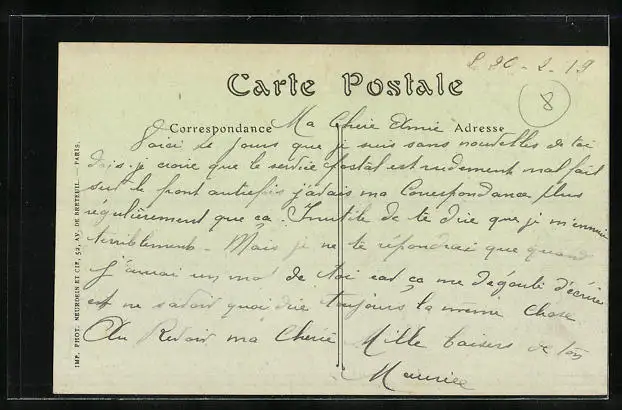 L 20-2-19
Carte Postale
8
Correspondance Adresse
Ma Cherie Aimée
Voici de jours que je suis sans nouvelles de toi
dois-je croire que le service postal est rudement mal fait
sur le front autrefois j'avais ma Correspondance plus
régulièrement que ça. Inutile de te dire que je m'ennuie
terriblement - Mais je ne te répondrai que quand
j'aurai un mot de toi car ça me dégoute d'écrire
et ne savoir quoi dire toujours la même chose
Au Revoir ma Cherie Mille baisers de ton
Maurice
IMP. PHOT. NEURDEIN ET CIE, 52, AV. DE BRETEUIL. — PARIS.